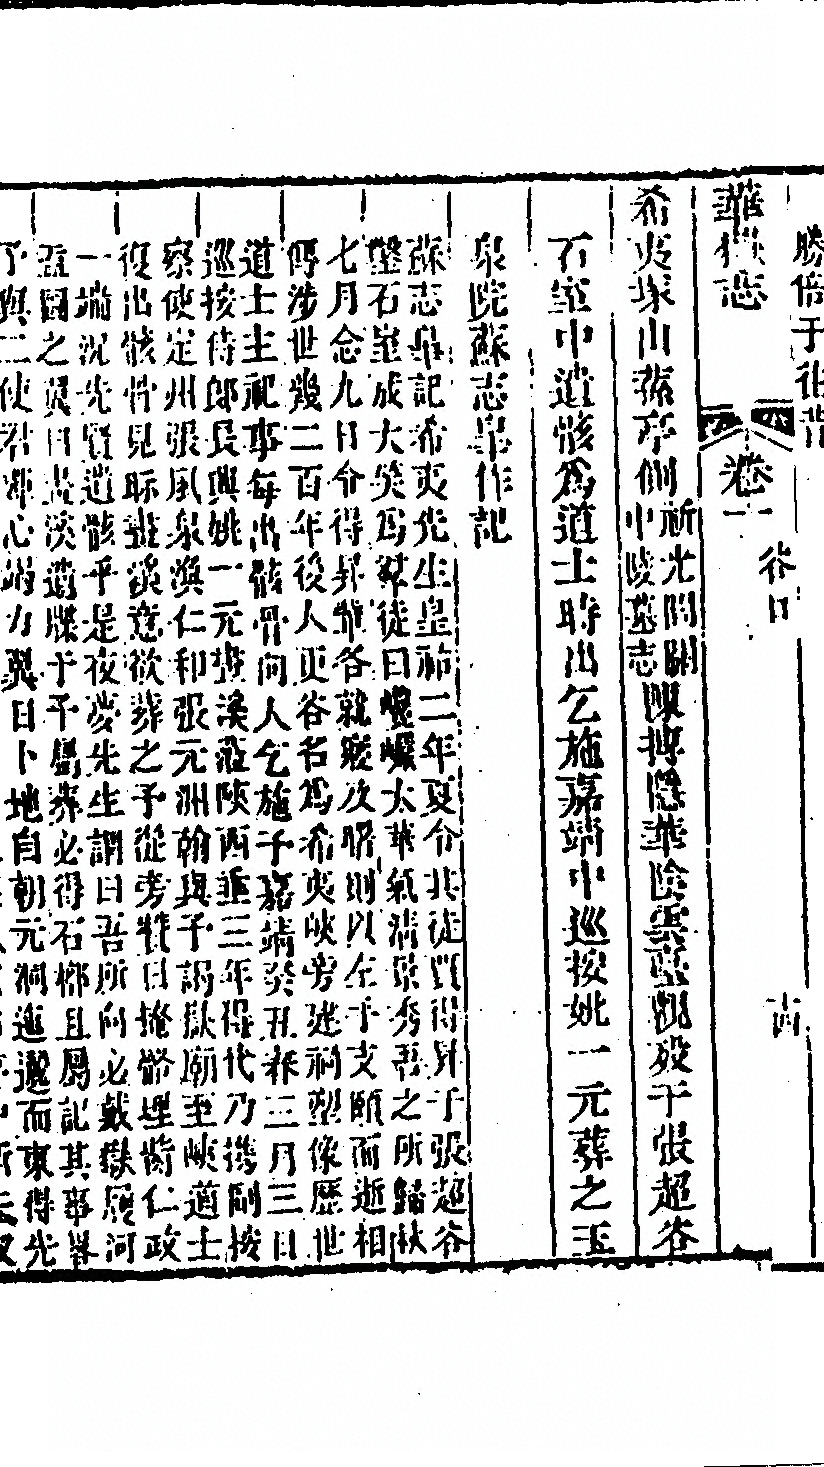 勝倍于往昔
華嶽志 卷一 谷口
希夷塚山蓀亭側祈光閣關中陵墓志陳摶隱華陰雲臺觀歿于張超谷
石室中遺骸為道士時出乞施嘉靖中巡按姚一元葬之玉
泉院蘇志臯作記
蘇志臯記希夷先生皇祐二年夏令其徒賈得昇于張超谷
鑿石室成大笑為其徒曰巍巍太華氣清景秀吾之所歸秋
七月念九日令得昇輩各就寢次曙則以左手支頤而逝相
傳涉世幾二百年後人更谷名為希夷峽旁建祠塑像歷世
道士主祀事每出骸骨向人乞施予嘉靖癸丑春三月三日
巡按侍郎長興姚一元畫溪蒞陝西垂三年得代乃携副按
察使定州張風泉渙仁和張元洲翰與予謁嶽廟至峽道士
復出骸骨見眎畫溪意欲葬之予從旁贊曰掩骼埋胔仁政
一端況先賢遺骸乎是夜夢先生謂曰吾所向必戴嶽履河
亟圖之翼日畫溪遺牒于予屬葬必得石槨且屬記其事畢
予與二使君渾心竭力翼日卜地自朝元洞迤邐而東得先